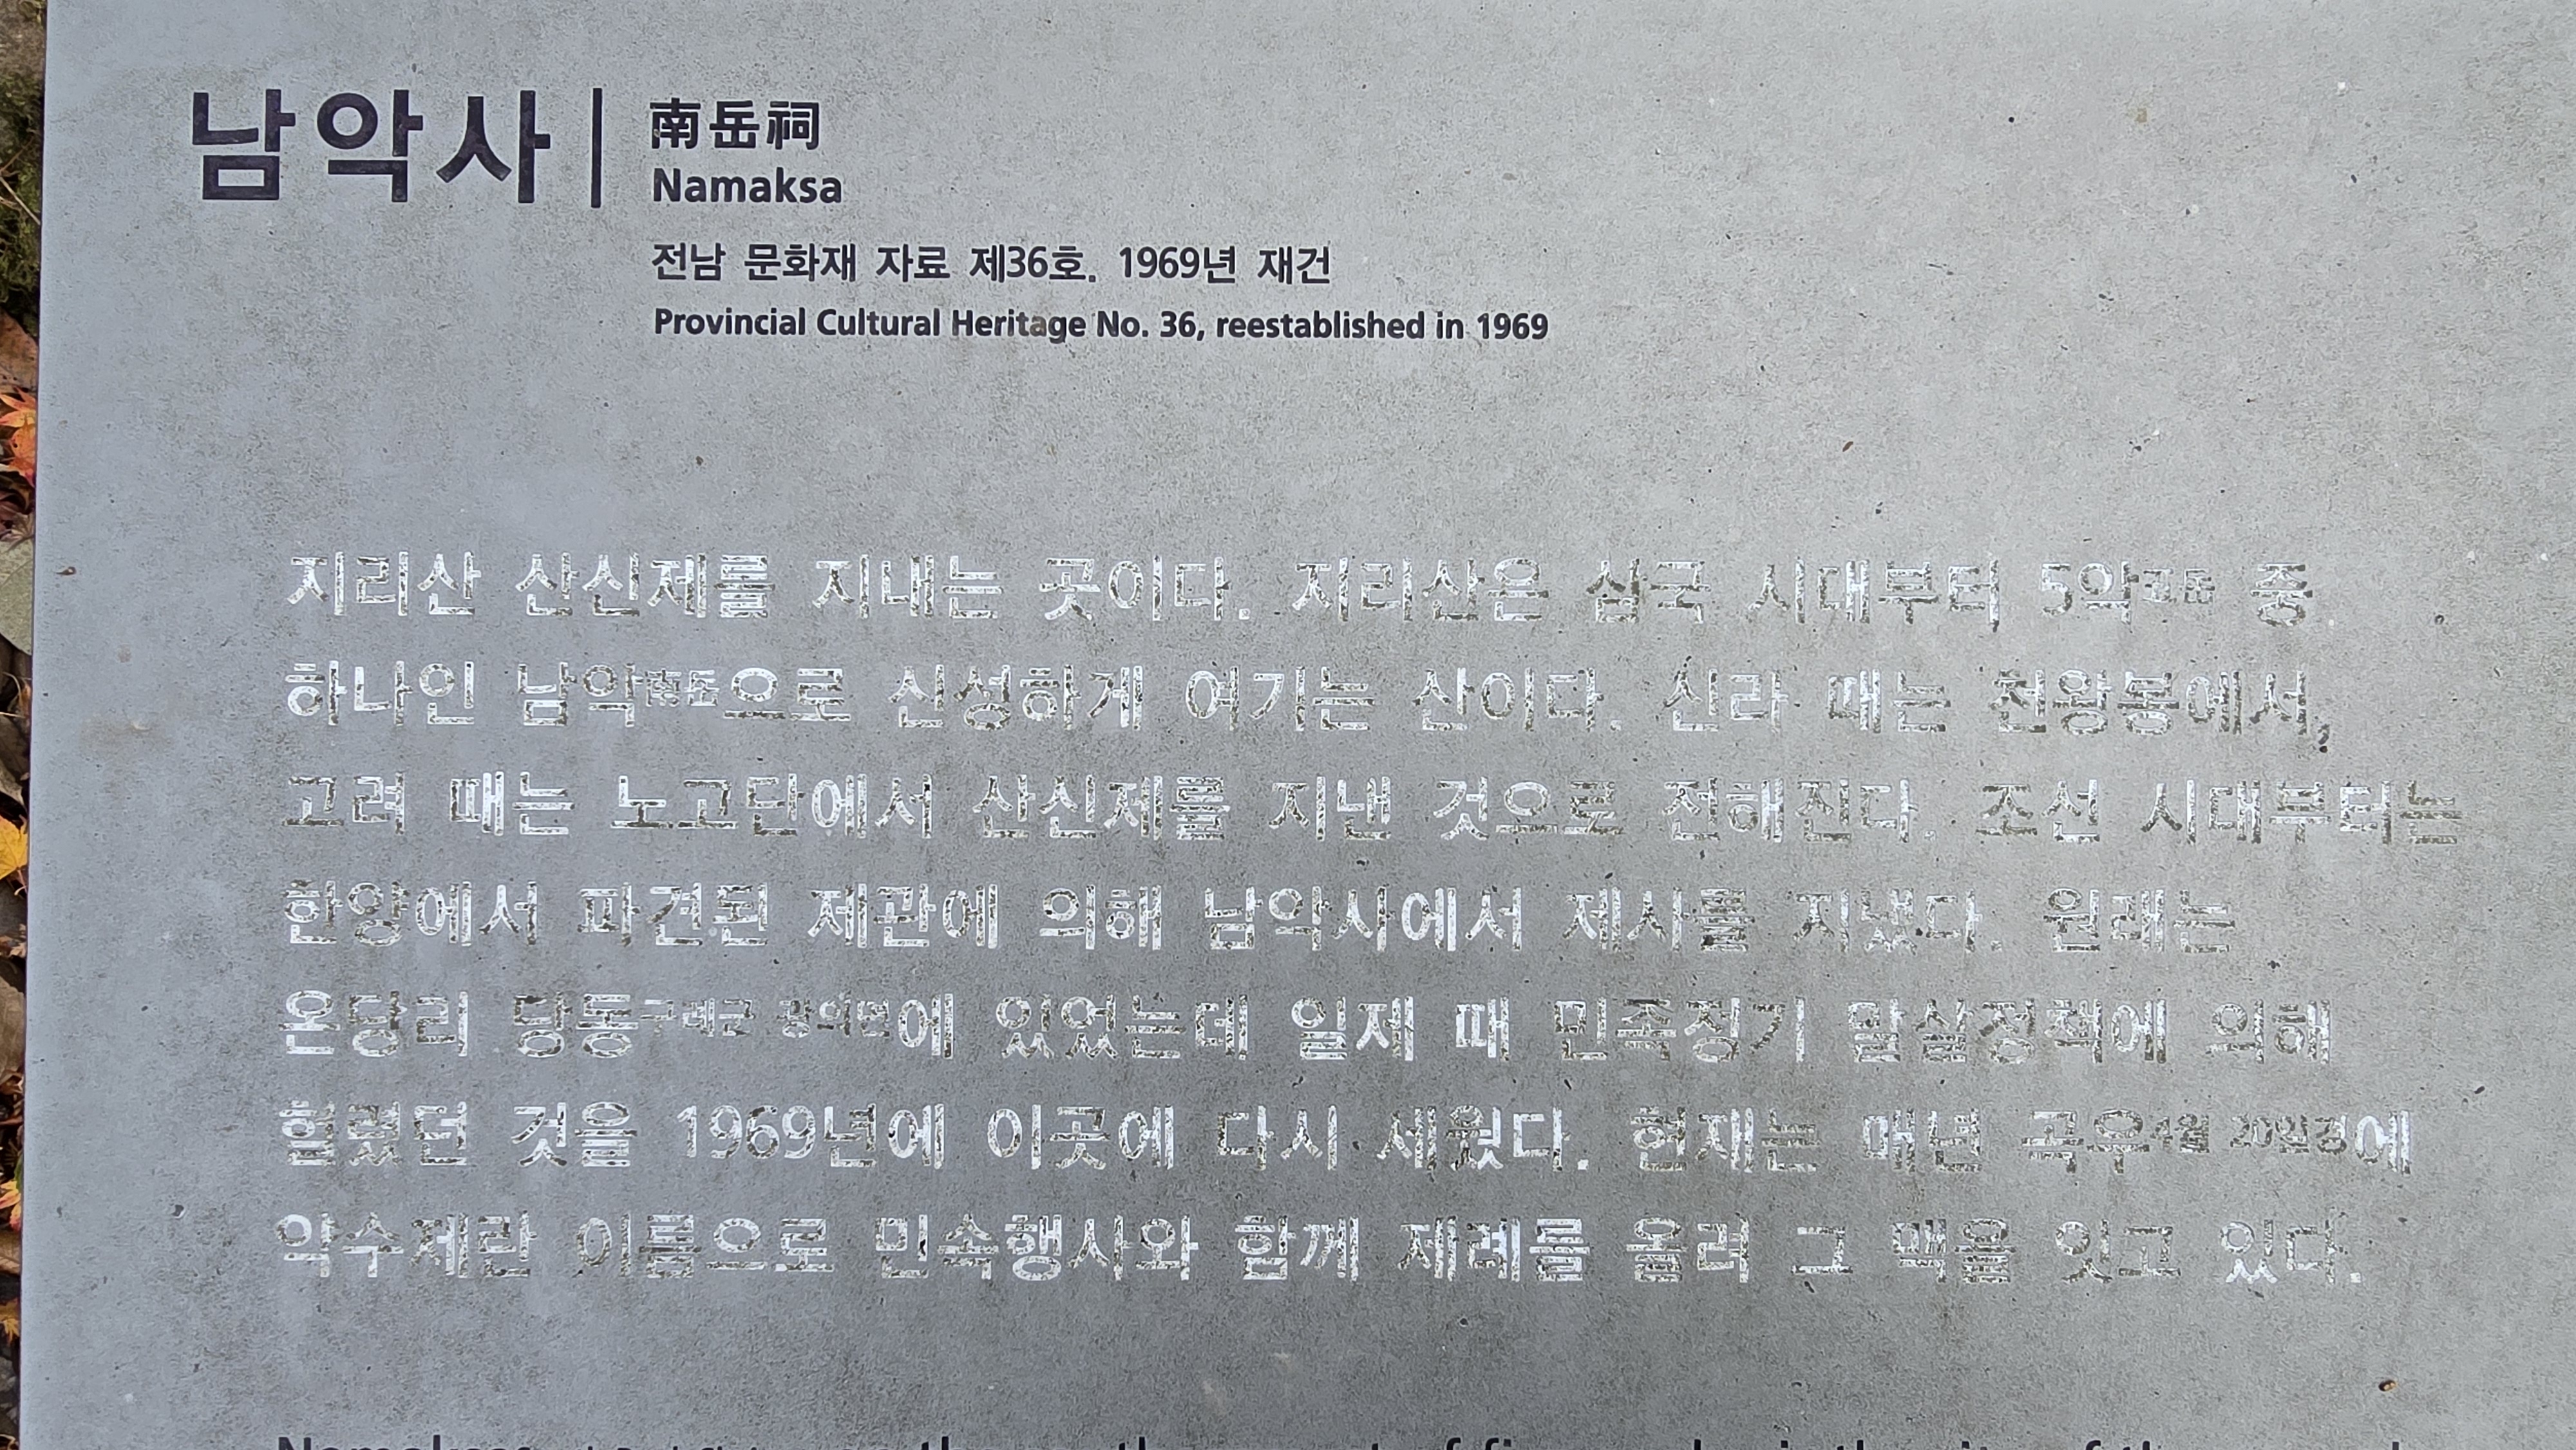 남악사
南岳祠
Namaksa
전남 문화재 자료 제36호. 1969년 재건
Provincial Cultural Heritage No. 36, reestablished in 1969
지리산 산신제를 지내는 곳이다. 지리산은 삼국 시대부터 5악五岳 중
하나인 남악南岳으로 신성하게 여기는 산이다. 신라 때는 천왕봉에서,
고려 때는 노고단에서 산신제를 지낸 것으로 전해진다. 조선 시대부터는
한양에서 파견된 제관에 의해 남악사에서 제사를 지냈다. 원래는
온당리 당동구례군 광의면에 있었는데 일제 때 민족정기 말살정책에 의해
헐렸던 것을 1969년에 이곳에 다시 세웠다. 현재는 매년 곡우4월 20일경에
약수제란 이름으로 민속행사와 함께 제례를 올려 그 맥을 잇고 있다.